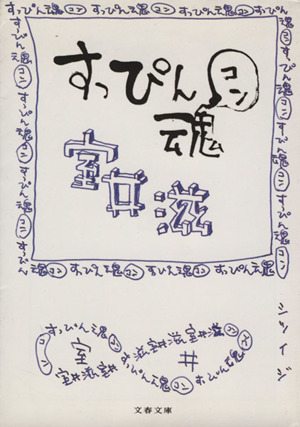 すっぴん魂 コン すっぴん魂 コン すっぴん魂 コン すっぴん
すっぴん
コン
魂
室井滋
すっぴん魂 コン すっぴん魂 コン すっぴん魂 コン すっぴん魂
すっぴん魂 コン すっぴん魂 コン すっぴん魂
すっぴん魂 コン すっぴん魂 コン すっぴん
すっぴん魂 コン すっぴん魂
コン
室
井
室井滋室井
滋室井滋室井滋
すっぴん魂 コン すっぴん魂
文春文庫